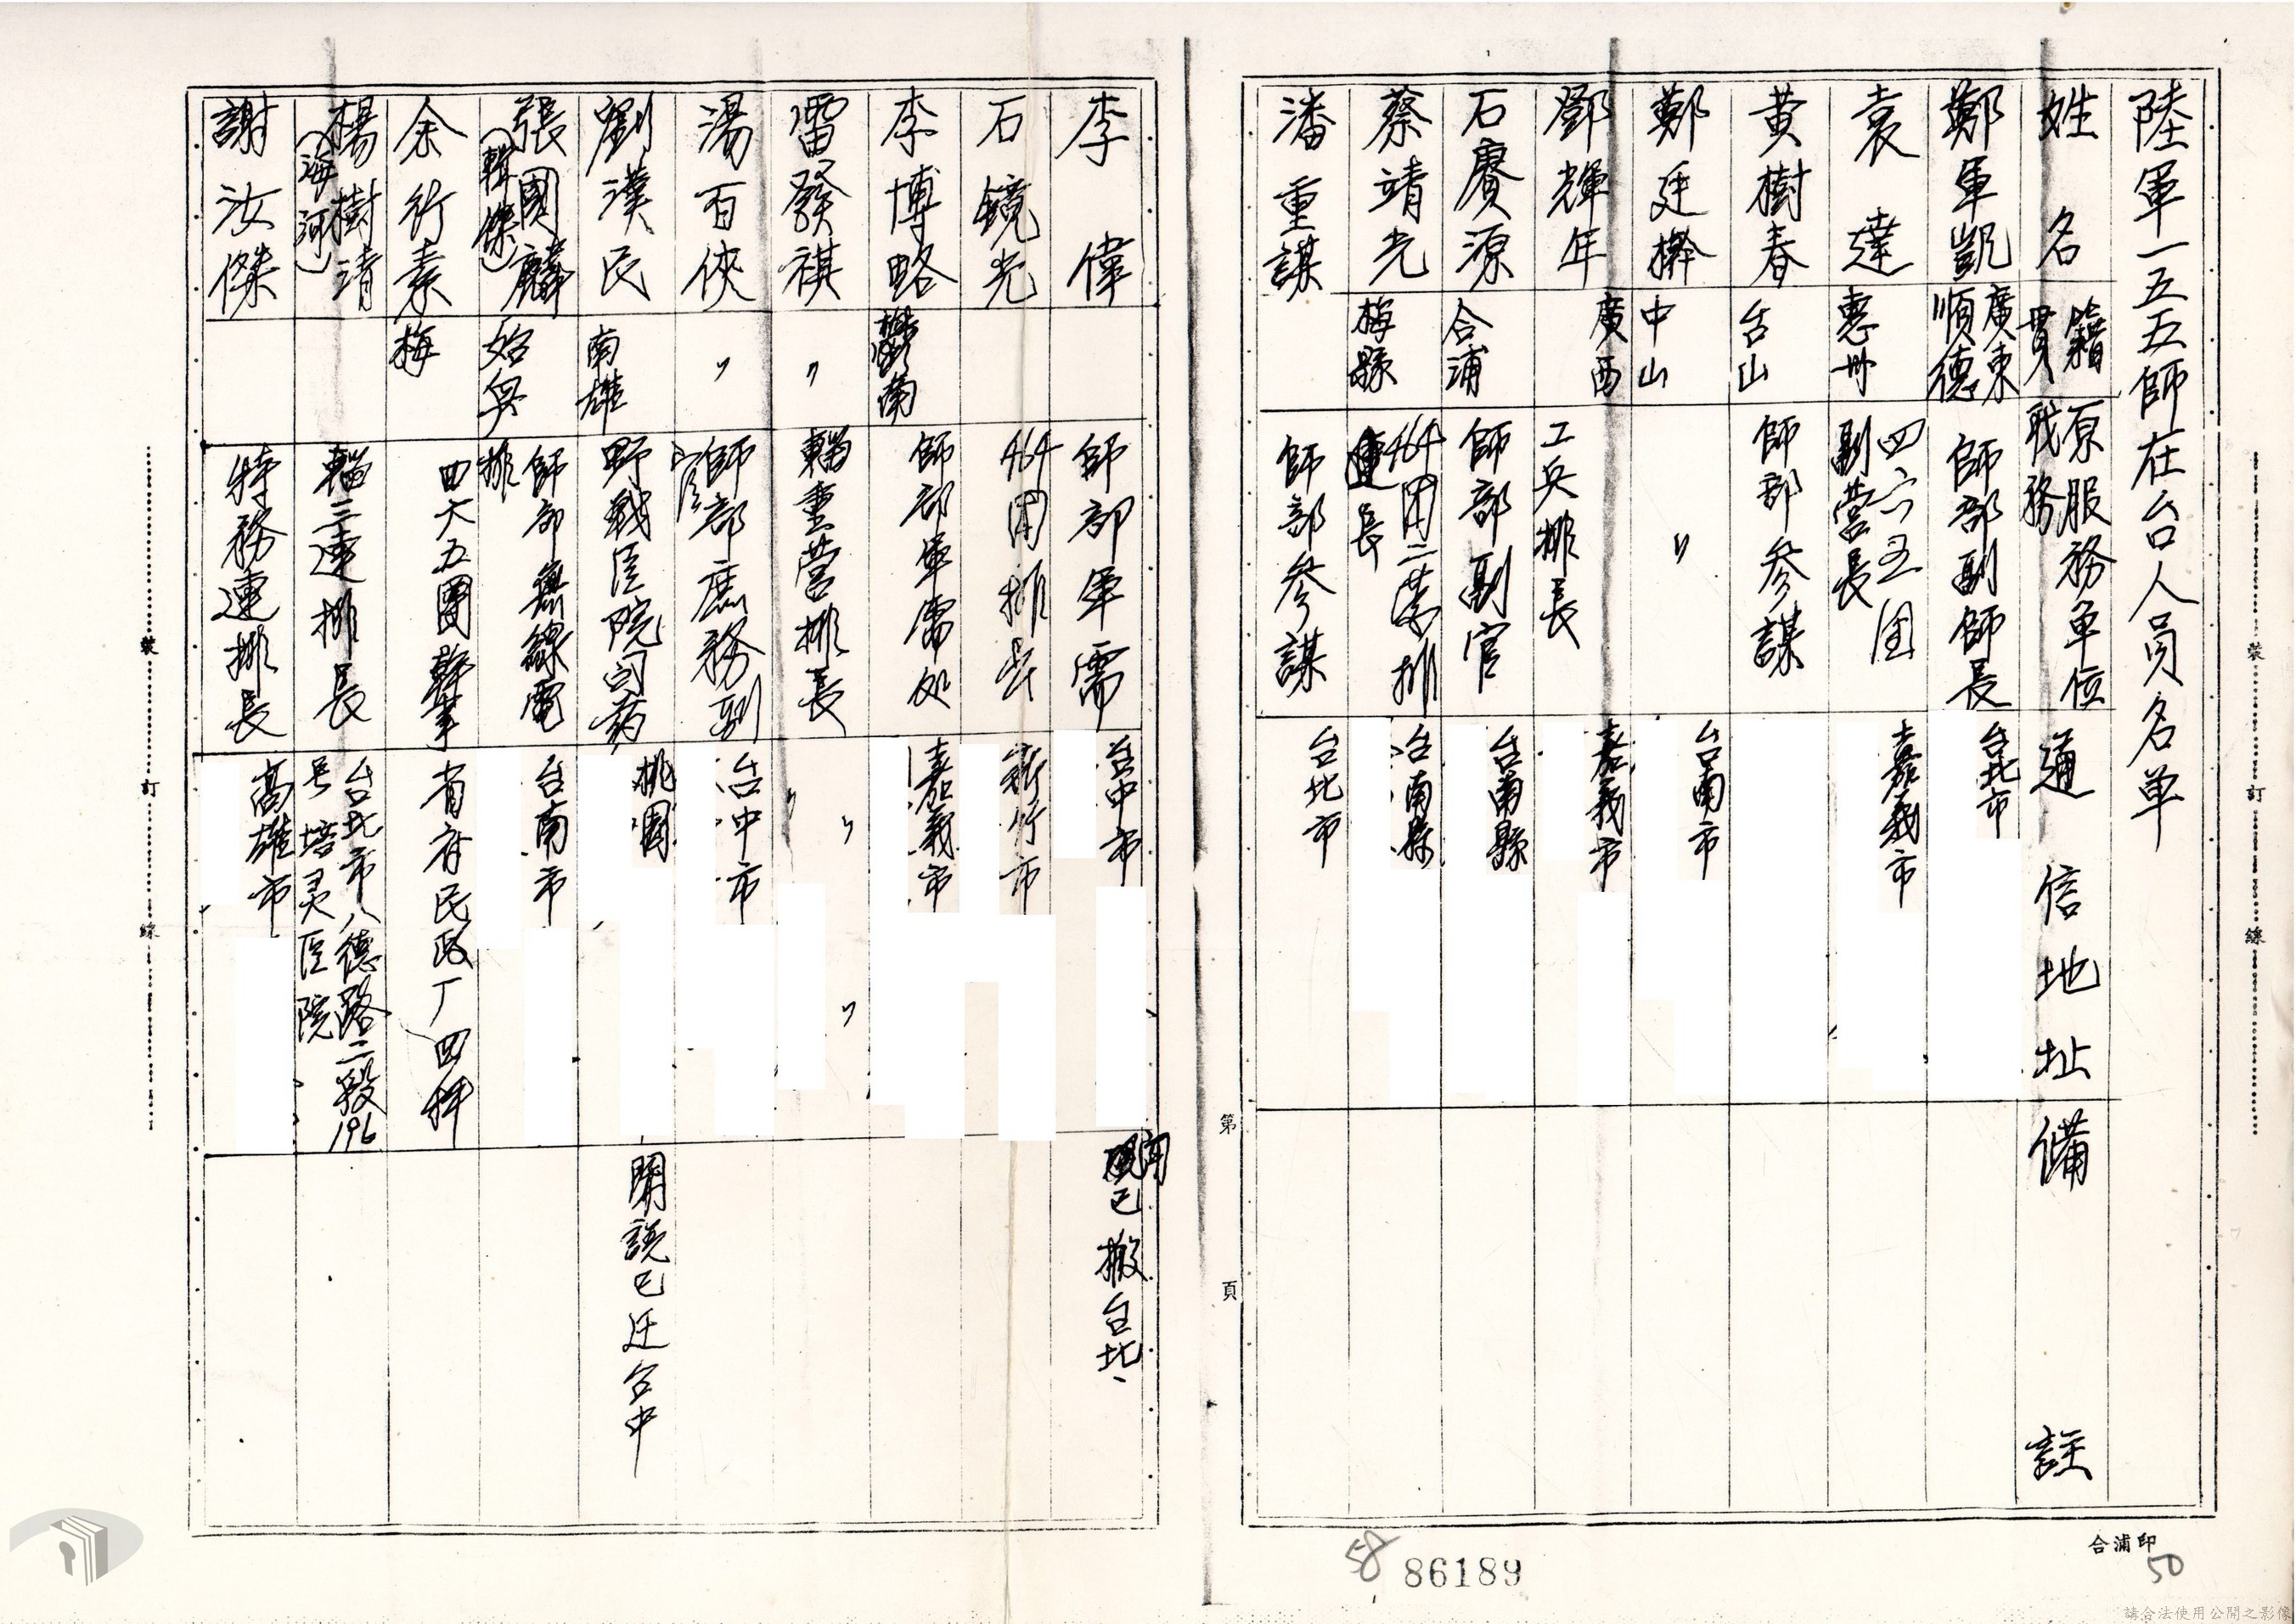 陸軍一五五師在台人員名單
姓名
籍貫
原服務單位
職務
通信地址
備註
鄭軍凱
廣東
順德
師部副師長
台北市
袁達
惠州
四六五團
副營長
嘉義市
黃樹春
台山
師部參謀
鄭廷檊
中山
〃
台南市
鄧輝年
廣西
工兵排長
嘉義市
石賡源
合浦
師部副官
台南縣
蔡靖光
梅縣
464團二營排
連長
台南縣
潘重謀
師部參謀
台北市
李偉
師部軍需
台中市
已搬台北
石鏡光
464團排長
新竹市
李博略
鬱南
師部軍需処
嘉義市
雷發祺
〃
輜重營排長
〃
〃
湯百俠
〃
師部庶務副
官
台中市
〃
劉漢民
南雄
野戰医院司药
桃園
聞說已迁台中
張國麟
(輯傑)
始興
師部無線電
排
台南市
余竹素
梅
四六五團幹事
省府民政厂四科
楊樹清
(海河)
輜二連排長
台北市八德路二段196
号培灵医院
謝汝傑
特務連排長
高雄市
裝
訂
線
裝
訂
線
第
頁
合浦印
58
86189
50
請合法使用公開之影像